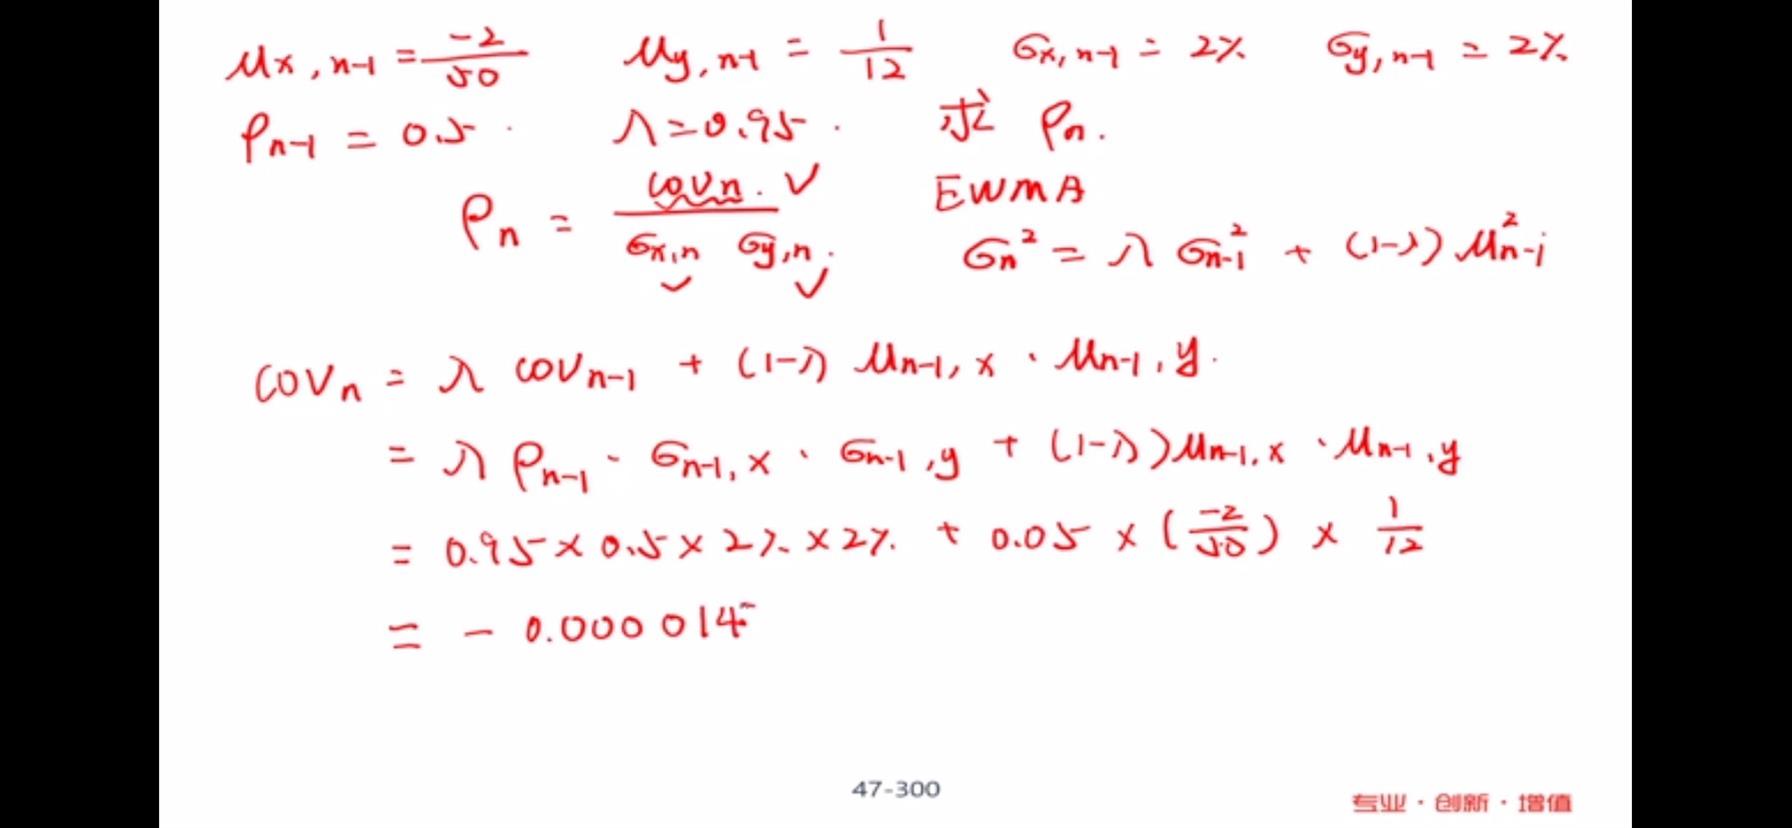 μx,n-1 = -2/50 μy,n-1 = 1/12 σx,n-1 = 2% σy,n-1 = 2%
ρn-1 = 0.5. λ=0.95. 求 ρn.
ρn = covn. √ / σx,n σy,n. EWMA
σn² = λ σn-1² + (1-λ) μn-1²
COVn = λ COVn-1 + (1-λ) μn-1,x · μn-1,y.
= λ ρn-1 · σn-1,x · σn-1,y + (1-λ) μn-1,x · μn-1,y
= 0.95 × 0.5 × 2% × 2% + 0.05 × (-2/50) × 1/12
= - 0.000 014
47-300
专业·创新·增值